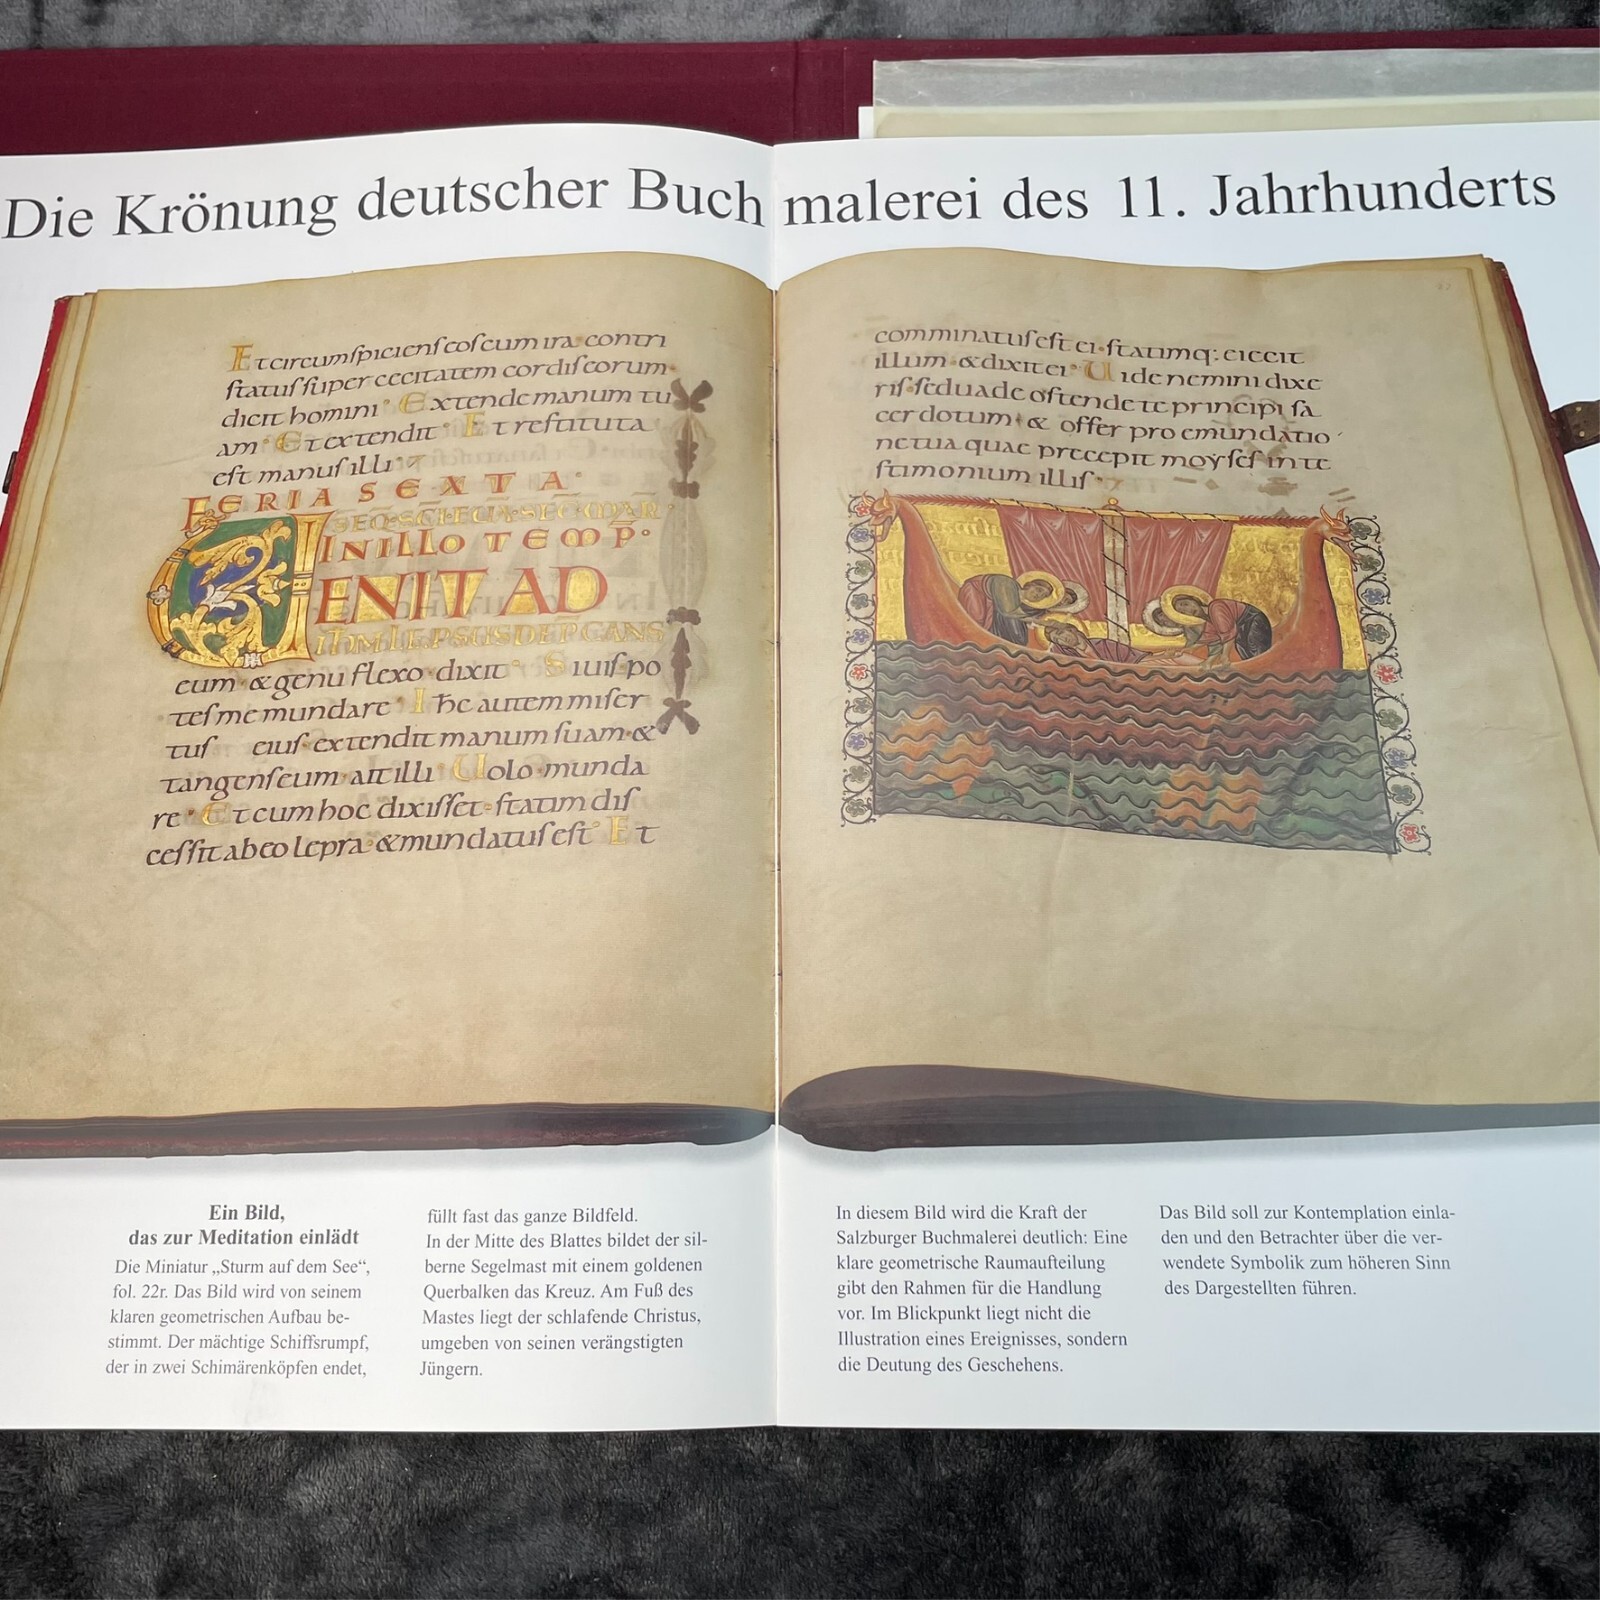 Die Krönung deutscher Buchmalerei des 11. Jahrhunderts
Et circumſpicienſ eoſ cum ira· contri
ſtatuſ ſuper cecitatem cordiſ eorum·
dicit homini· Extende manum tu
am· Et extendit· Et reſtituta
eſt manuſ illi·
FERIA SEXTA·
SEQ· SCI EUV· SEC MAR·
IN ILLO TEMP̅·
UENIT AD
eum· & genu flexo· dixit· Si uiſ po
teſ me mundare· Ih̅c autem miſer
tuſ eiuſ· extendit manum ſuam· &
tangenſ eum· ait illi· Uolo· munda
re· Et cum hoc dixiſſet· ſtatim diſ
ceſſit ab eo lepra· & mundatuſ eſt· Et
comminatuſ eſt ei· ſtatimq: eiecit
illum· & dixit ei· Uide nemini dixe
riſ· ſed uade oſtende te principi ſa
cerdotum· & offer pro emundatio
ne tua quae precepit moyſeſ in te
ſtimonium illiſ·
Ein Bild,
das zur Meditation einlädt
Die Miniatur „Sturm auf dem See“,
fol. 22r. Das Bild wird von seinem
klaren geometrischen Aufbau be-
stimmt. Der mächtige Schiffsrumpf,
der in zwei Schimärenköpfen endet,
füllt fast das ganze Bildfeld.
In der Mitte des Blattes bildet der sil-
berne Segelmast mit einem goldenen
Querbalken das Kreuz. Am Fuß des
Mastes liegt der schlafende Christus,
umgeben von seinen verängstigten
Jüngern.
In diesem Bild wird die Kraft der
Salzburger Buchmalerei deutlich: Eine
klare geometrische Raumaufteilung
gibt den Rahmen für die Handlung
vor. Im Blickpunkt liegt nicht die
Illustration eines Ereignisses, sondern
die Deutung des Geschehens.
Das Bild soll zur Kontemplation einla-
den und den Betrachter über die ver-
wendete Symbolik zum höheren Sinn
des Dargestellten führen.